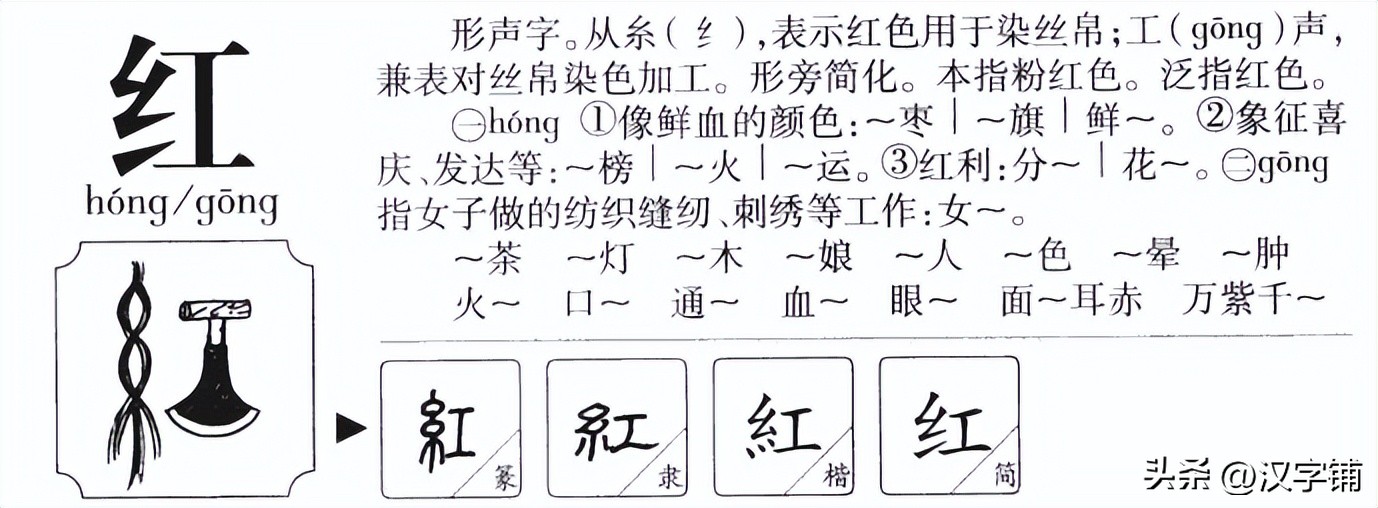 红
hóng/gōng
形声字。从糸(纟),表示红色用于染丝帛;工(gōng)声,
兼表对丝帛染色加工。形旁简化。本指粉红色。泛指红色。
㊀hóng ①像鲜血的颜色:～枣|～旗|鲜～。②象征喜
庆、发达等:～榜|～火|～运。③红利:分～|花～。㊁gōng
指女子做的纺织缝纫、刺绣等工作:女～。
～茶 ～灯 ～木 ～娘 ～人 ～色 ～晕 ～肿
火～ 口～ 通～ 血～ 眼～ 面～耳赤 万紫千～
紅 篆 紅 隶 紅 楷 红 简
头条 @汉字铺